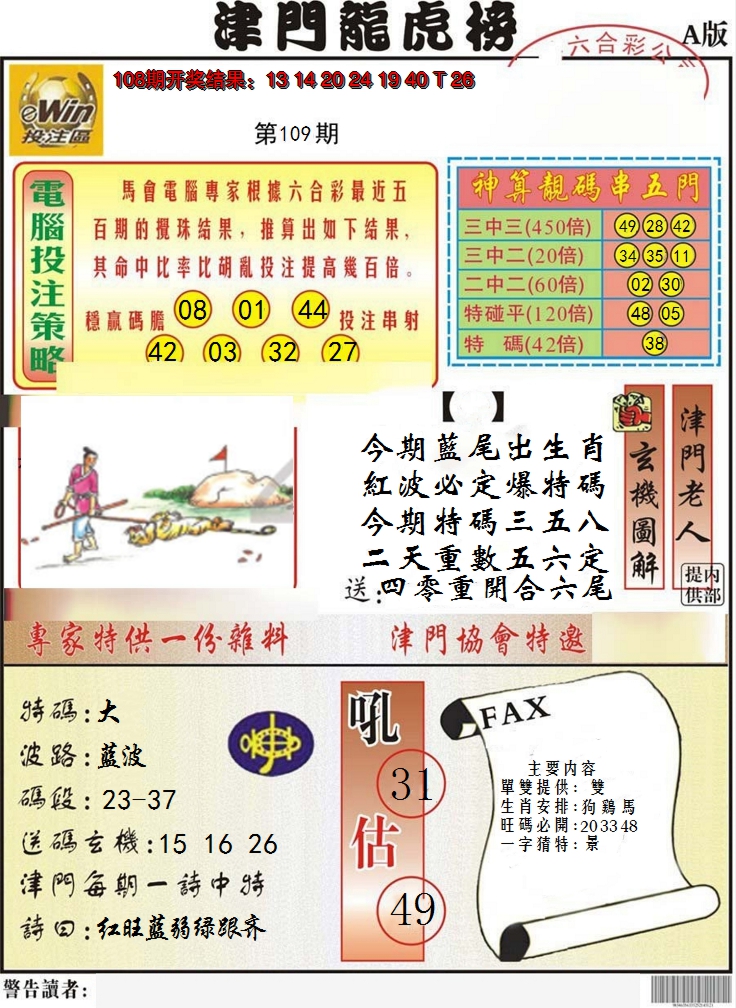 津門龍虎榜
六合彩公
A版
eWin
投注區
108期开奖结果：13 14 20 24 19 40 T 26
第109期
電腦投注策略
馬會電腦專家根據六合彩最近五
百期的攪珠结果，推算出如下结果，
其命中比率比胡亂投注提高幾百倍。
穩贏碼膽 08 01 44 投注串射
42 03 32 27
神算靚碼串五門
三中三(450倍) 49 28 42
三中二(20倍) 34 35 11
二中二(60倍) 02 30
特碰平(120倍) 48 05
特 碼(42倍) 38
【 】
今期藍尾出生肖
紅波必定爆特碼
今期特碼三五八
二天重數五六定
送：四零重開合六尾
玄機圖解
津門老人
内部提供
專家特供一份雜料
津門協會特邀
特碼：大
波路：藍波
碼段：23-37
送碼玄機：15 16 26
津門每期一詩中特
詩曰：红旺蓝弱绿跟齐
吼
31
估
49
FAX
主要内容
單雙提供：雙
生肖安排：狗鷄馬
旺碼必開：20 33 48
一字猜特：景
警告讀者：